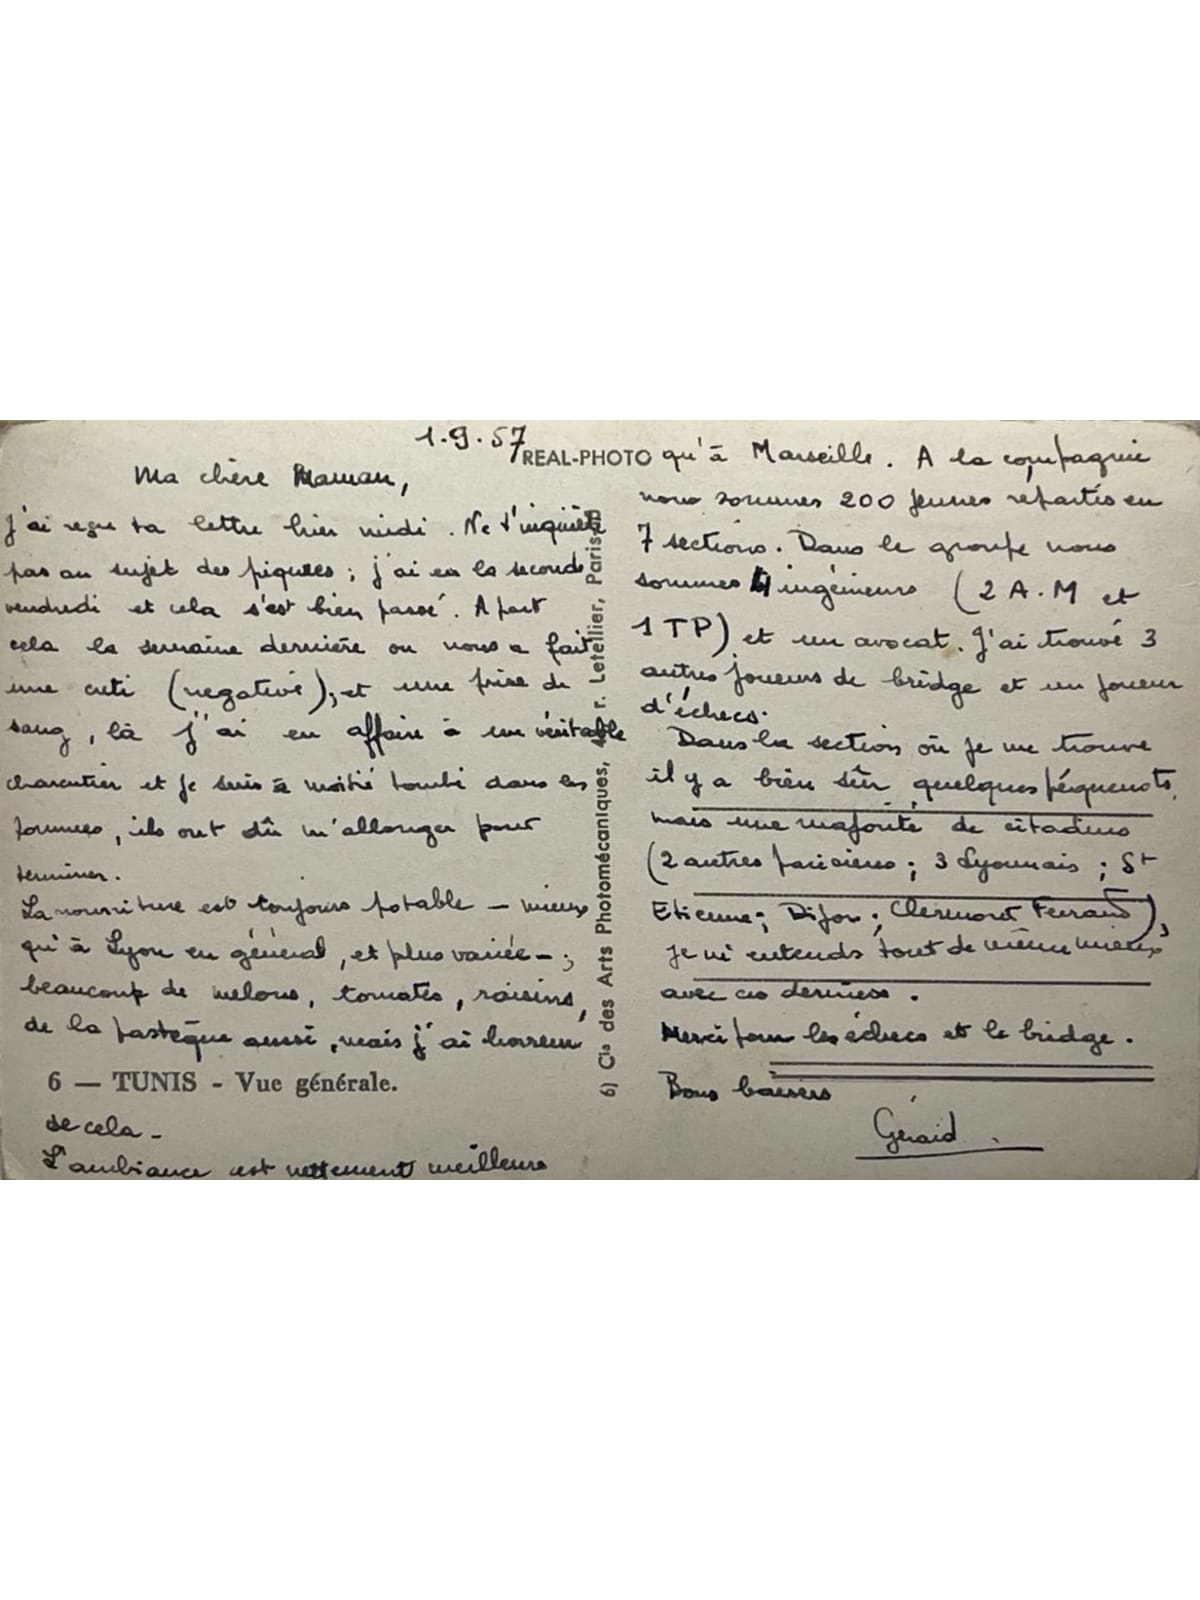 1.9.57
Ma chère Maman,
J'ai reçu ta lettre hier midi. Ne t'inquiète
pas au sujet des piqures ; j'ai eu la seconde
vendredi et cela s'est bien passé. A part
cela la semaine dernière on nous a fait
une cuti (negative), et une prise de
sang, là j'ai eu affaire à un véritable
charcutier et je suis à moitié tombé dans les
pommes, ils ont dû m'allonger pour
terminer.
La nourriture est toujours potable — mieux
qu'à Lyon en général, et plus variée — ;
beaucoup de melons, tomates, raisins,
de la pastèque aussi, mais j'ai horreur
6 — TUNIS - Vue générale.
de cela -
L'ambiance est nettement meilleure
REAL-PHOTO
6) Cie des Arts Photomécaniques, r. Letellier, Paris
qu'à Marseille. A la compagnie
nous sommes 200 jeunes répartis en
7 sections. Dans le groupe nous
sommes 4 ingénieurs (2 A.M et
1 TP) et un avocat. J'ai trouvé 3
autres joueurs de bridge et un joueur
d'échecs.
Dans la section où je me trouve
il y a bien sûr quelques péquenots,
mais une majorité de citadins
(2 autres parisiens ; 3 Lyonnais ; St
Etienne ; Dijon ; Clermont Ferrand),
je m'entends tout de même mieux
avec ces derniers.
Merci pour les échecs et le bridge.
Bons baisers
Gérard